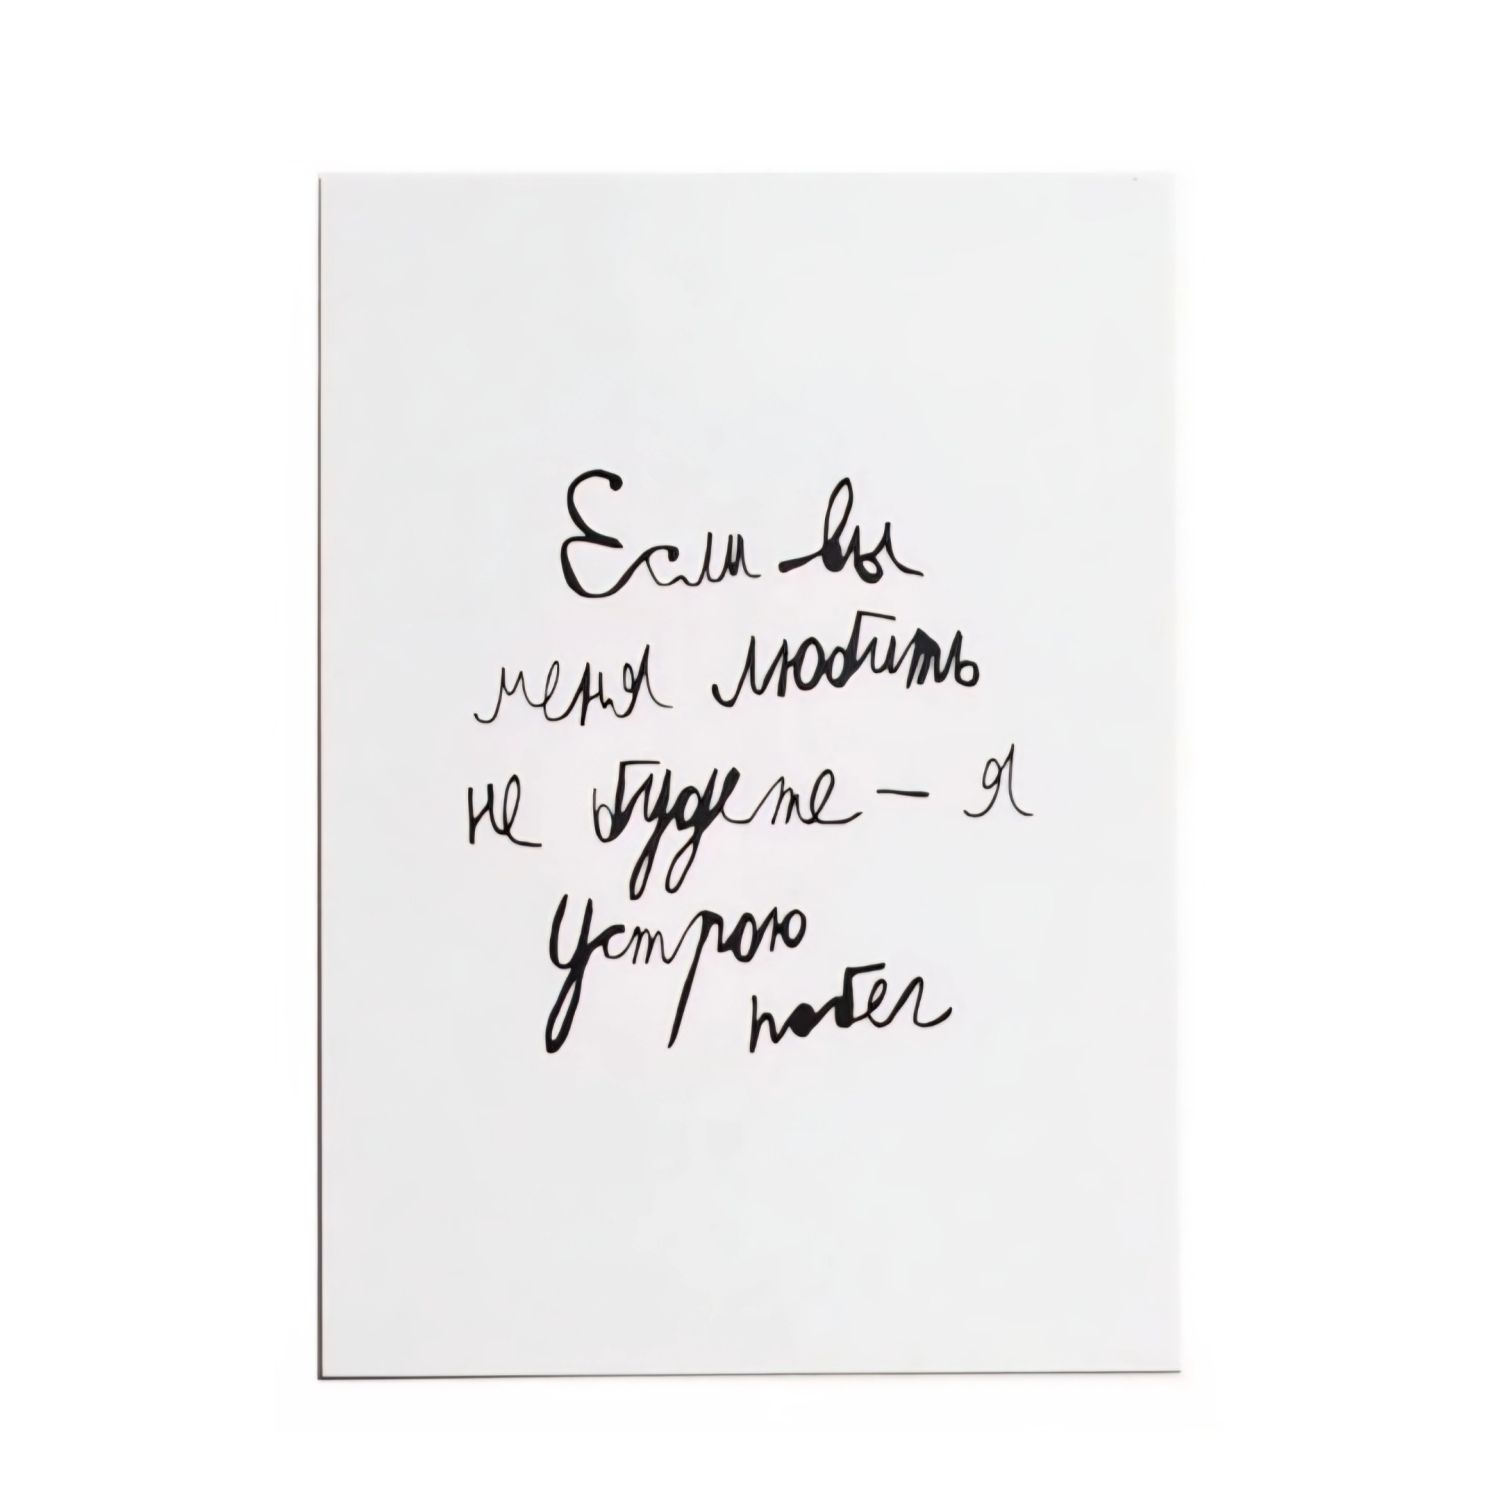 Если вы
меня любить
не будете – я
устрою
побег